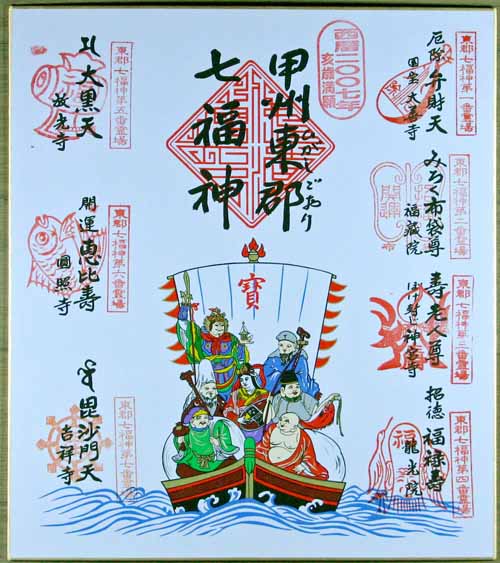 甲州東郡
ひがしごおり
七福神
西暦二〇〇七年
亥歳満願
東郡七福神第一番霊場
厄除 弁財天
東郡七福神第二番霊場
みろく布袋尊
福蔵院
開運
布
東郡七福神第三番霊場
寿老人尊
神宮寺
東郡七福神第四番霊場
招徳 福禄寿
龍光院
福
東郡七福神第五番霊場
大黒天
放光寺
東郡七福神第六番霊場
開運 恵比寿
圓照寺
東郡七福神第七番霊場
毘沙門天
吉祥寺
寶